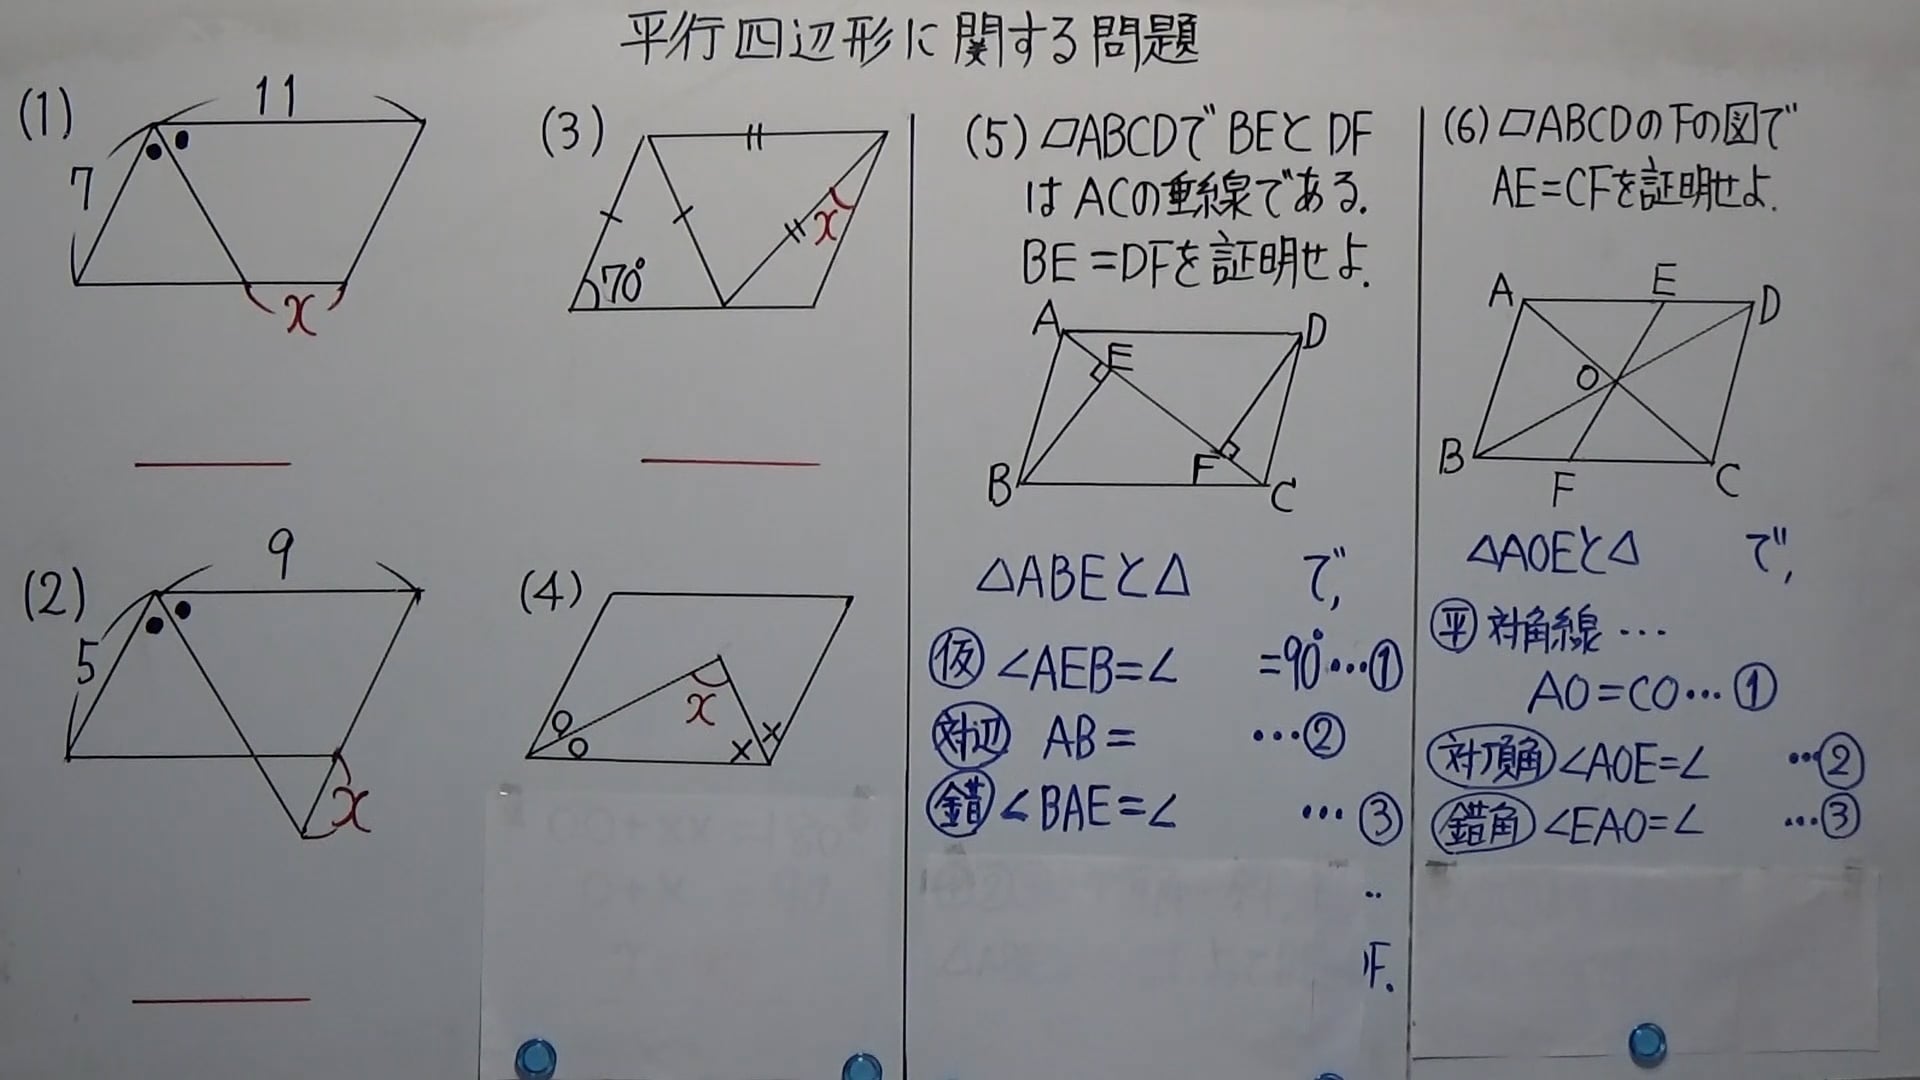 平行四辺形に関する問題
(1)
11
7
x
(2)
9
5
x
(3)
70°
x
(4)
x
(5) ▱ABCDでBEとDF
はACの垂線である.
BE=DFを証明せよ.
A
D
E
F
B
C
△ABEと△ で,
仮 ∠AEB=∠ =90°…①
対辺 AB= …②
錯 ∠BAE=∠ …③
F.
(6) ▱ABCDの下の図で
AE=CFを証明せよ.
A
E
D
O
B
F
C
△AOEと△ で,
平 対角線…
AO=CO…①
対頂角 ∠AOE=∠ …②
錯角 ∠EAO=∠ …③